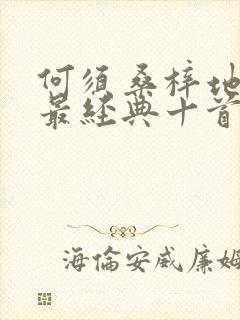 何须桑梓地
最经典十首
海倫安威廉姆